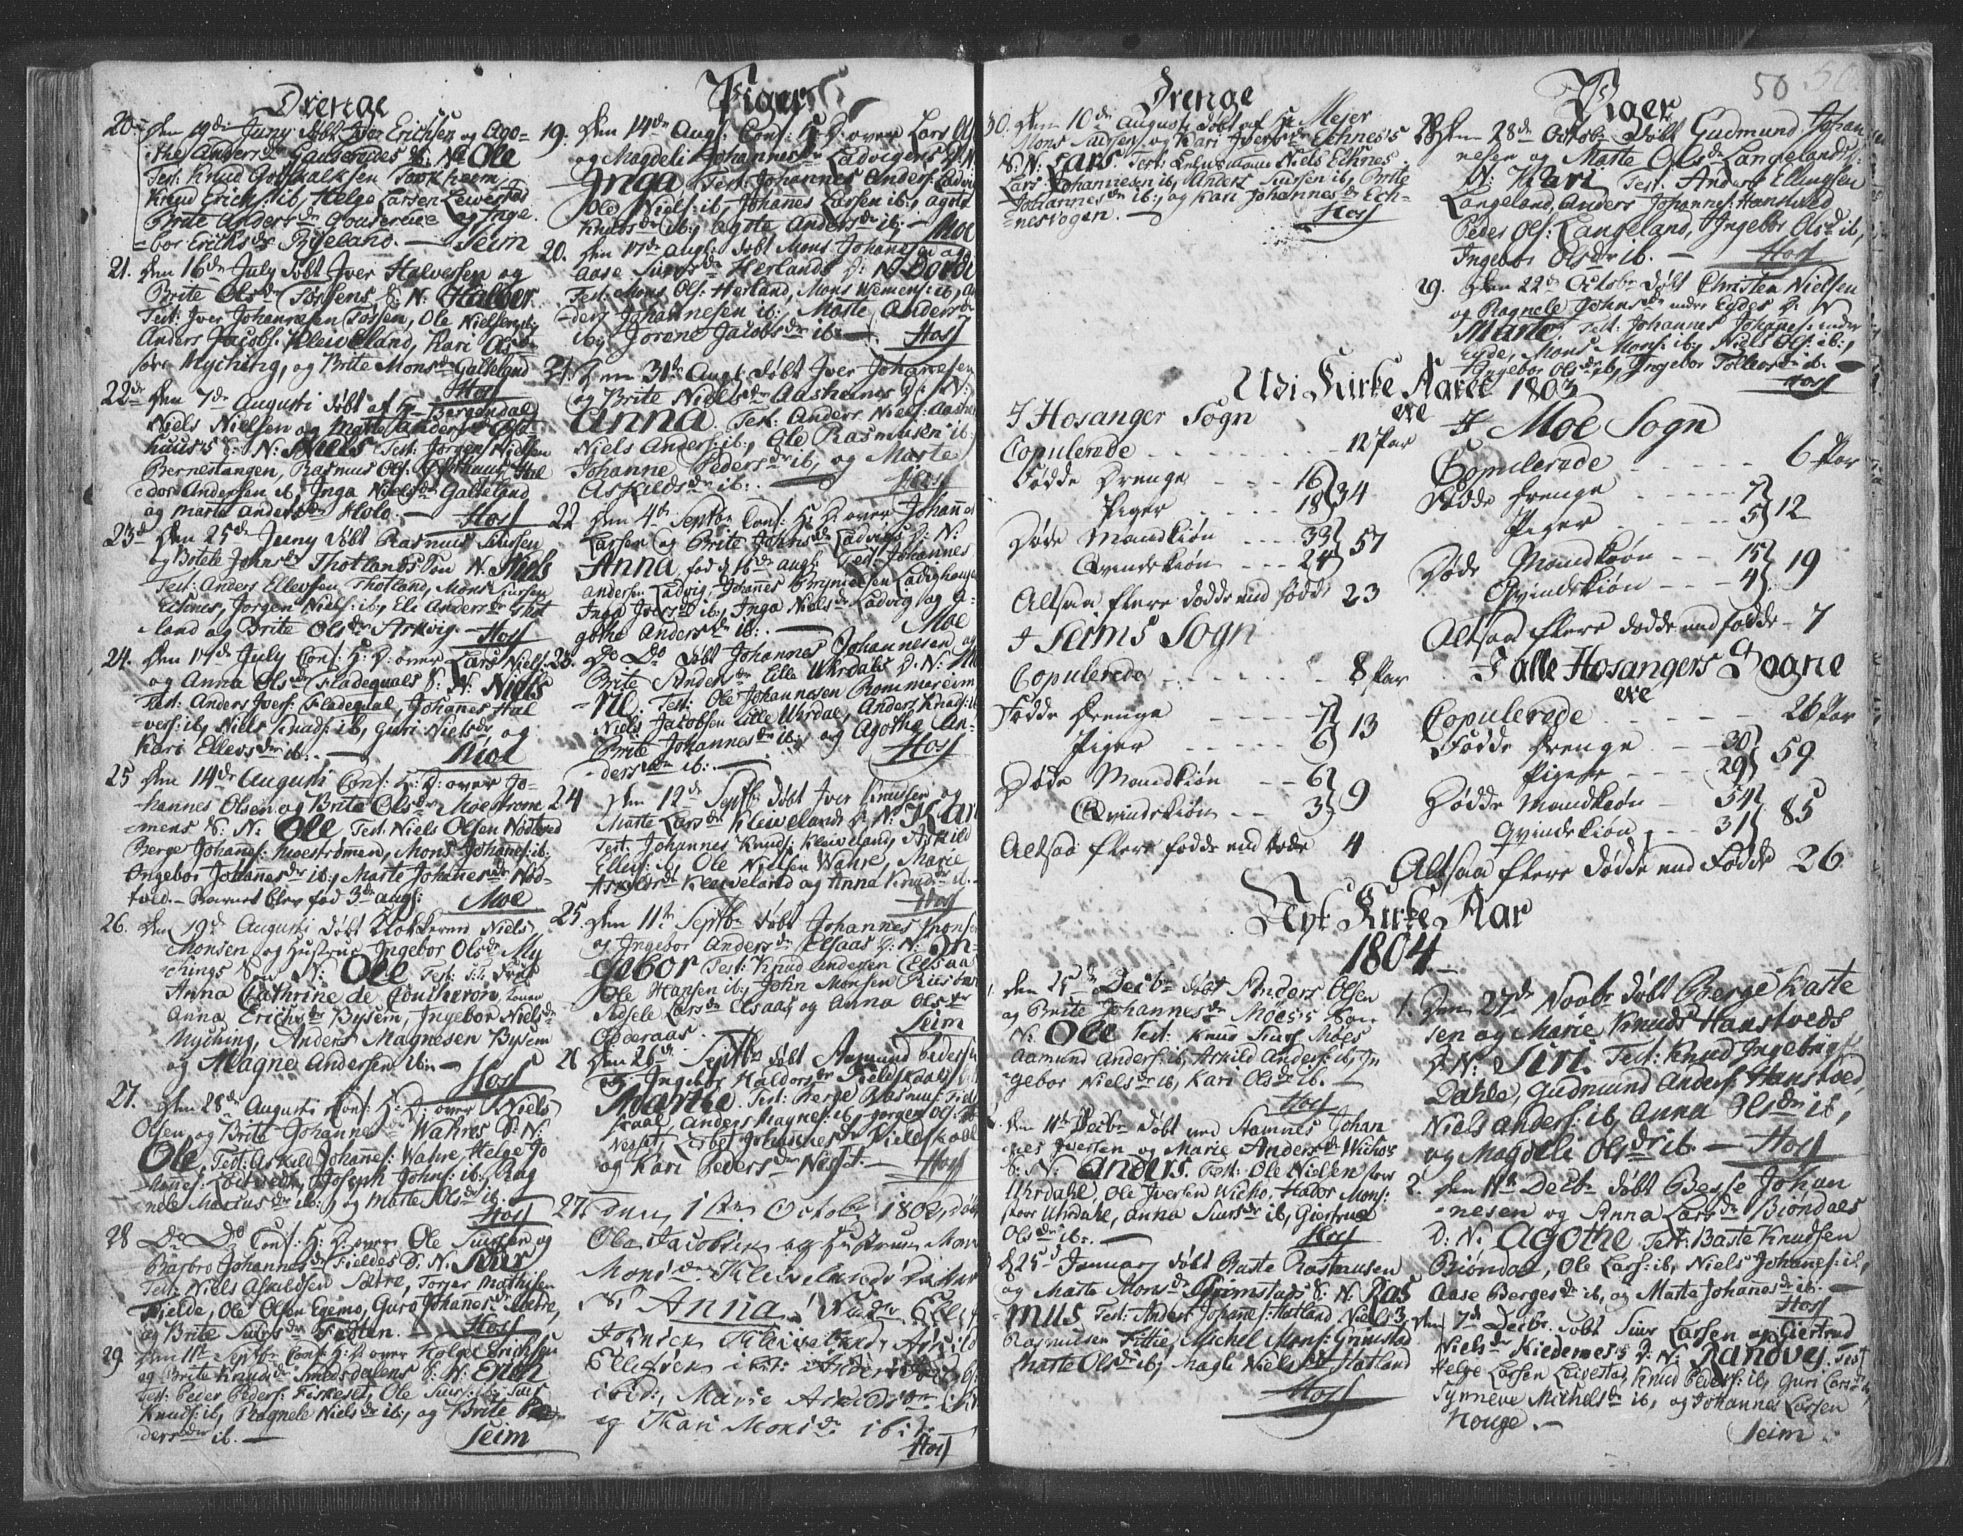 Drenge
20. Den 19de Juny døbt Iver Erichsen og Ago-
the Andersdr Gauserejdes S: N: Ole
Test: Knud
Knud Erichs: ib, Helge Larsen Leivestad
Brite Andersdr og Inge-
bor Erichsdr Bysem. — Seim
21. Den 16de July døbt Iver Halvorsen og
Brite Olsdr Tossens, S: N: Halvor
Test: Iver Johannesen Tossen, Ole Nielsen ib,
Anders Jacobs: Kleiveland, Kari
Myching, og Brite Monsdr Galteland
Hoss
22de Den 7de Augusti døbt af Hr Bergendal
Niels Nielsen og Marte Andersdr
huus S: N: Niels Test: Jørgen Nielsen
Bernestangen, Rasmus Ols:
Andersen ib, Inga Nielsdr Galteland
og Marte Andersdr Holo. — Hoss
23d Den 25de Juny døbt Rasmus Siursen
og Botele Johnsdr Thotlands Søn N: Niels
Test: Anders Ellevsen Thotland, Mons Siursen
Echnes, Jørgen Niels: ib, Eli Andersdr Thot
land og Brite Olsdr Arkvig. — Hoss
24. Den 17de July Conf: H: D: over Lars Niels:
og Anna Olsdr Fladequals S: N: Niels
Test: Anders Ivers: Fladequal, Johanes Hal
vers: ib, Niels Knuds: ib, Guri Nielsdr, og
Kari Ellevsdr ib: — Moe
25 Den 14de Augusti Conf: H: D: over Jo-
hannes Olsen og Brite Olsdr Moestrøm
mens S: N: Ole Test: Niels Olsen Nødtved
Berge Johans: Moestrømen, Mons Johans: ib:
Ingebor Johanesdr ib, Marte Johanesdr Nød-
tved. — Barnet blev fød 3de Aug:
Moe
26. Den 19de Augusti døbt Klokkeren Niels
Monsen og Hustrue Ingebor Olsdr My
chings Søn N: Ole Test: S:l: Frue
Anna Cathrine de Coucheron, Konen
Anna Erichsdr Bysem, Ingebor Nielsdr
Myching, Anders Magnesen Bysem
og Magne Andersen ib: — Hoss
27. Den 28de Augusti Conf: H: D: over Niels
Olsen og Brite Johannesdr Wahres S: N:
Ole, Test: Askild Johannes: Wahre, Helge Jo
hans: Loitvedt, Joseph Johns: ib:, Rag
nele Mariusdr ib:, og Marte Olsdr ib.
Hoss
28 Do Do Conf: H: D: over Ole Siursen og
Barbro Johannesdr Fieldes S: N: Siur
Test: Niels Askildsen Sætre, Torger Mathisen
Fielde, Ole Olsen Egemo, Guro Johanesdr Sætre,
og Brite Siursdr Totten. — Hoss
29 Den 11te Septbr Conf: H: D: over Holge Erichsen
og Brite Knudsdr Smedsdalens S: N: Erich
Test: Peder Peders: Fiskeset, Ole Siurs: ib: Siur
Knuds: ib, Ragnele Nielsdr ib:, og Brite Pe
dersdr ib. — Seim

Piger
19. Den 14de Augs: Conf: H: D: over Lars
og Magdeli Johannesdr Ladvigers D: N:
Inga Test: Johannes Anders: Ladvig
Ole Niels: ib:, Johanes Larsen ib:, Agote
Knudsdr ib:, Agote Andersdr ib: — Moe
20. Den 17de Augs: døbt Mons Johanesen og
Aase Siursdr Herlands D: N: Bordi
Test: Mons Ols: Herland, Mons Clemens: ib:, An
ders Johannesen ib:, Marte Andersdr
ib, Jorene Jacobsdr ib: — Hoss
21. Den 31te Augs: døbt Iver Johannesen
og Brite Nielsdr Aasheims D: N:
Anna Test: Anders Niels: Aasheim
Niels Anders: ib:, Ole Rasmusen ib:
Johanne Pedersdr ib, og Marte
Askildsdr ib:. — Hoss
22 Den 4de Septbr Conf: H: D: over Johannes
Larsen og Brite Johnsdr Ladvigs D: N:
Anna fød d: 16de Augs: Test: Johannes
Andersen Ladvig, Johannes Brynielsen Ladighougen
Inga Iversdr ib:, Inga Nielsdr Ladvig og A-
gothe Andersdr ib:. — Moe
23. Do Do døbt Johannes Johannesen og
Brite Andersdr Lille Uhrdals D: N: Ma
rie, Test: Ole Johannesen Rommereim
Niels Jacobsen Lille Urdal, Anders Knuds: ib
Brite Johannesdr ib:, og Agothe An-
dersdr ib: — Hoss
24 Den 12de Septbr døbt Iver Knutsen og
Marte Larsdr Kleivelands D: N: Kari
Test: Johannes Knuds: Kleiveland, Askild
Ellefs: ib, Ole Nielsen Wahre, Marie
Askildsdr Kleiveland og Anna Knudsdr ib. —
Hoss
25. Den 11te Septbr døbt Johannes Monsen
og Ingebor Andersdr Elsaas D: N: In-
gebor Test: Knud Andersen Elsaas
Ole Hansen ib, John Monsen
Sidsele Larsdr Elsaas og Anna Olsdr
Oderaas. — Seim
26 Den 26de Septbr døbt Aamund Pedersen
og Ingebor Haldorsdr Fieldskaals
Marthe. Test: Berge Rasmus: Field
skaal, Anders Magnes: ib, Jørgen Ols:
Nesset, Ingebor Johannesdr Fieldskaal
og Kari Pedersdr Nesset. — Hoss
27. Den 1ste October 1803, døbt
Ole Jacobsen og Hustrue Mari
Monsdr Kleivelands Datter
N: Anna, Test:
Kleiveland, Askild
Ellefsen ibi: Anders Niels:
ibid: Marie Askildsdr ibi
og Kari Monsdr ibi:
Hoss

Drenge
30. Den 10de Augusti døbt af Hr Meyer
Mons Siursens og Kari Iversdr Echnes's
S: N: Lars Test: Niels Echnes,
Lars Johannesen ib, Anders Siursen ib, Brite
Johannesdr ib:, og Kari Johannesdr Ech-
nesvogen. — Hoss

Piger 50
28 Den 28de Octobr døbt Gudmund Johan
nesen og Marte Olsdr Langelands D:
N: Kari Test: Anders Ellingsen
Langeland, Anders Johannes: Hanstved
Peder Ols: Langeland, Ingebor Olsdr ib,
Ingebor Olsdr ib. — Hoss
29. Den 22de Octobr døbt Christen Nielsen
og Ragnele Johnsdr under Eydes D: N:
Marte, Test: Johannes Johanes: under
Eyde, Mons Mons: ib:, Niels Ols: ib:,
Ingebor Olsdr ib, Ingebor Tollevsdr ib. —
Hoss

Udi Kirke Aaret 1803
ere
I Hosanger Sogn
Copulerede - - - - - - 12 Par
Fødde Drenge - - - 16 } 34
Piger - - - - - 18
Døde Mandkiøn - - - 33 } 57
Qvindekiøn - - - 24
Altsaa flere dødde end fødde 23
I Seims Sogn
Copulerede - - - - - - 8 Par
Fødde Drenge - - - - 7 } 13
Piger - - - - - 6
Døde Mandkiøn - - 6 } 9
Qvindekiøn - - 3
Altsaa flere fødde end døde 4

I Moe Sogn
Copulerede - - - - - 6 Par
Fødde Drenge - - - - - 7 } 12
Piger - - - - - 5
Døde Mandkiøn - - 15 } 19
Qvindekiøn - - - - 4
Altsaa flere dødde end fødde - 7
I alle Hosangers Sogne
ere
Copulerede - - - - - 26 Par
Fødde Drenge - - 30 } 59
Piger - - - - 29
Dødde Mandkiøn - 54 } 85
Qvindekiøn - - - 31
Altsaa flere Dødde end Fødde 26

Nyt Kirke Aar
1804
1. Den 25de Decbr døbt Anders Olsen
og Brite Johannesdr Møes's Søn
N: Ole Test: Knud Siurs: Møes
Aamund Anders: ib, Askild Anders: ib, In
gebor Nielsdr ib, Kari Olsdr ib. —
Hoss
2. Den 11te Decbr døbt ved Stamnes Johan
nes Iversen og Marie Andersdr Wichos
S: N: Anders. Test: Ole Nielsen Stor
Uhrdahl, Ole Iversen Wicho, Hador Mons:
Stor Uhrdahl, Anna Siursdr ib, Giertrue
Olsdr ib. — Hoss
3 D 25de January døbt Baste Rasmusen
og Marte Monsdr Grimstads S: N: Ras
mus Test: Anders Johans: Hatland, Niels
Rasmusen Tittie, Michel Mons: Grimstad
Marte Olsdr ib, Magle Nielsdr Hatland
Hoss

1. Den 27de Novbr døbt Berge Karste
sen og Marie Knudsdr Hanstveds
D: N: Siri. Test: Knud Ingebrigts:
Dahle, Gudmund Anders: Hanstved,
Niels Anders: ib, Anna Olsdr ib,
og Magdeli Olsdr ib. — Hoss
2. Den 11te Decbr døbt Besse Johan
nesen og Anna Larsdr Biøndals
D: N: Agothe Test: Baste Knudsen
Biøndal, Ole Lars: ib, Niels Johanes: ib,
Aase Bergesdr ib, og Marte Johanesdr ib. —
Hoss
3. Den 7de Decbr døbt Siur Larsen og Giertrud
Nielsdr Kiedemes's D: N: Randvej. Test
Helge Larsen Leivestad, Knud Peders: ib, Guri Larsdr ib,
Synneve Michelsdr ib, og Johannes Larsen
Houge. — Seim